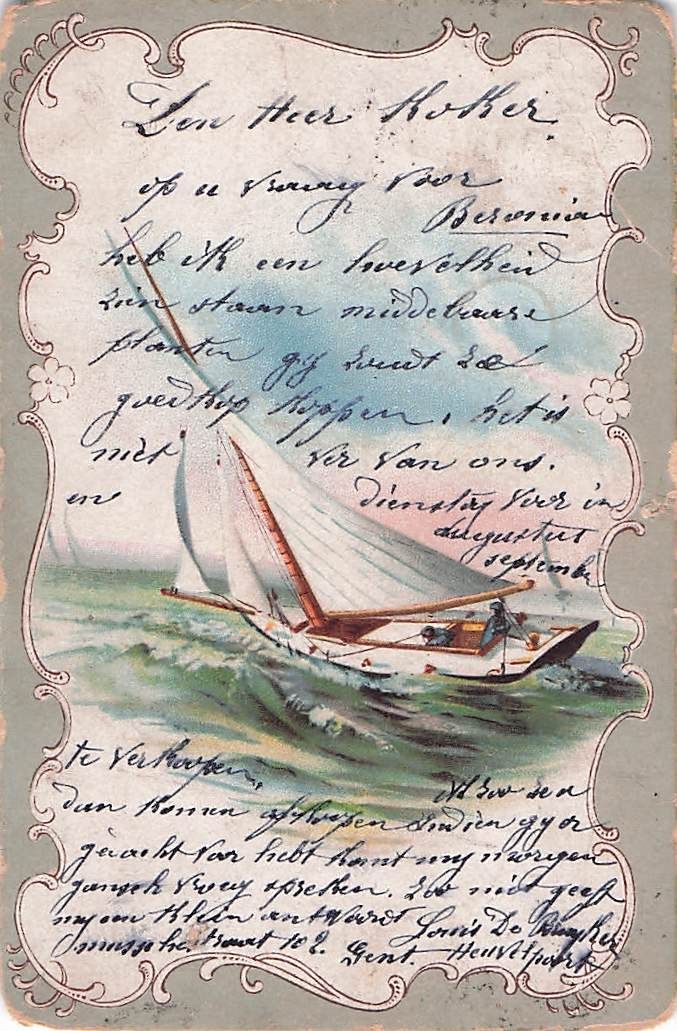 Den Heer Koker
op u vraag voor
Beronia
heb ik een hoevelheid
zien staan middelbaare
planten gij zoudt ze
goedkop koppen, het is
niet ver van ons.
en dienstag voor in
Augustus
septembe
te verkoopen,
Al zoo ze u
dan konnen afkoopen indien gy er
geacht voor hebt komt my morgen
gansch vroeg spreken. Zoo niet geeft
my een klein antwoordt Louis De
musschestraat 102. Gent - Heuvelpoort